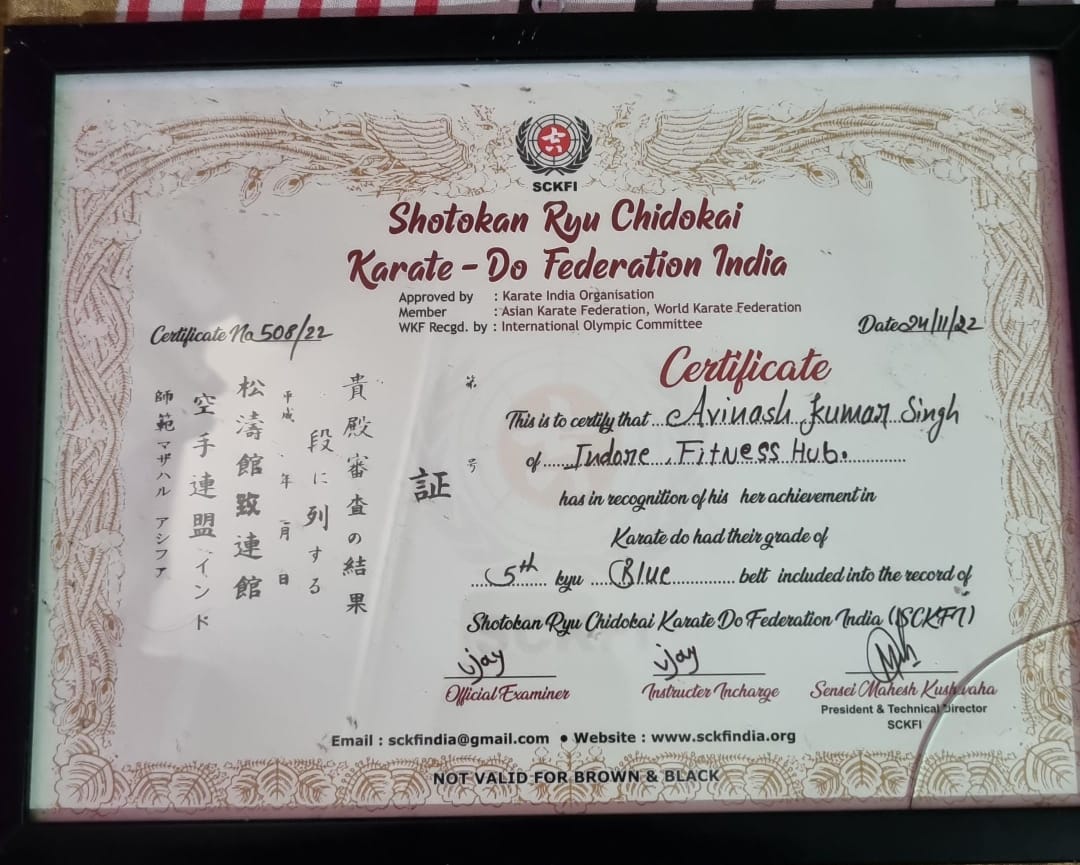 SCKFI
Shotokan Ryu Chidokai
Karate - Do Federation India
Approved by : Karate India Organisation
Member : Asian Karate Federation, World Karate Federation
WKF Recgd. by : International Olympic Committee
Certificate No 508/22
Date 24/11/22
Certificate
This is to certify that Avinash Kumar Singh
of Indore Fitness Hub.
has in recognition of his her achievement in
Karate do had their grade of
5th kyu Blue belt included into the record of
Shotokan Ryu Chidokai Karate Do Federation India (SCKFI)
第 号
証
貴殿審査の結果
段に列する
平成 年 月 日
松濤館致連館
空手連盟インド
師範マザハル アシファ
vijay
Official Examiner
vijay
Instructer Incharge
Sensei Mahesh Kushwaha
President & Technical Director
SCKFI
Email : sckfindia@gmail.com • Website : www.sckfindia.org
NOT VALID FOR BROWN & BLACK